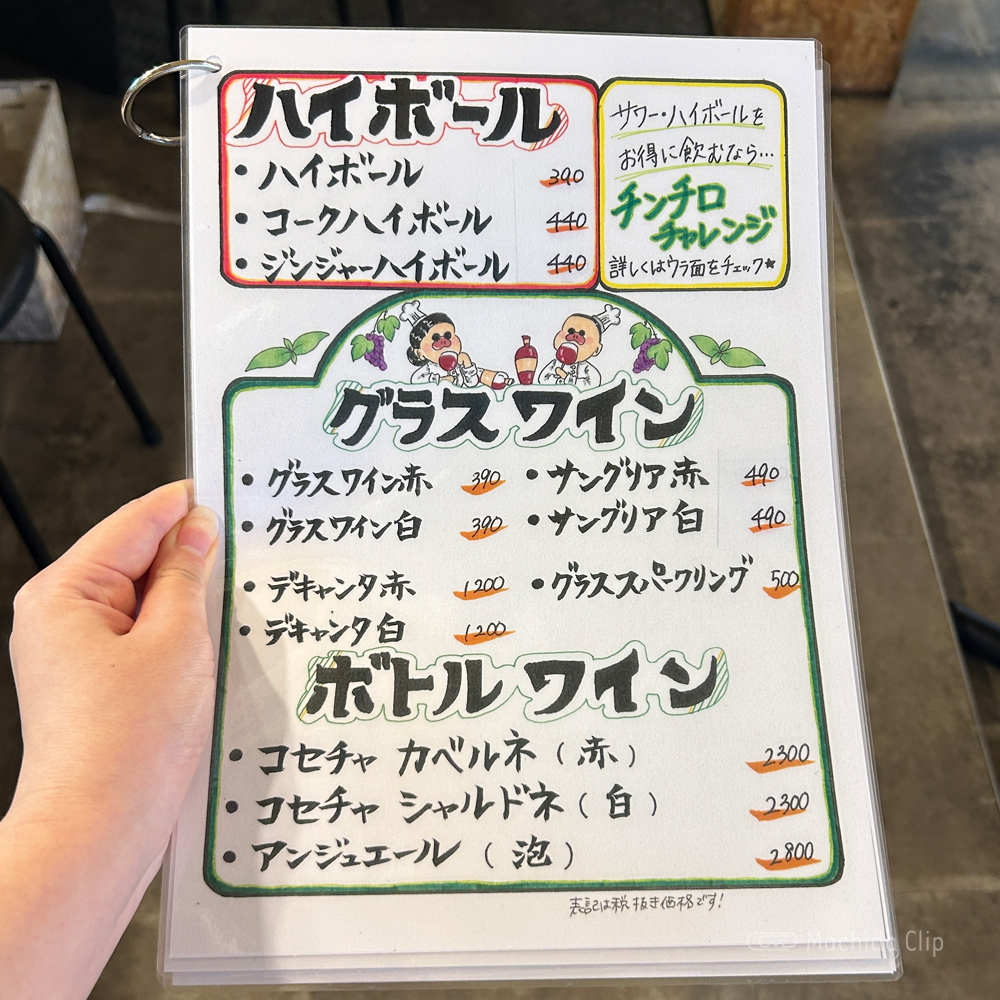 ハイボール
・ハイボール 390
・コークハイボール 440
・ジンジャーハイボール 440
サワー・ハイボールを
お得に飲むなら…
チンチロ
チャレンジ
詳しくはウラ面をチェック★
グラスワイン
・グラスワイン赤 390
・サングリア赤 490
・グラスワイン白 390
・サングリア白 490
・デキャンタ赤 1200
・グラススパークリング 500
・デキャンタ白 1200
ボトルワイン
・コセチャ カベルネ（赤） 2300
・コセチャ シャルドネ（白） 2300
・アンジュエール（泡） 2800
表記は税抜き価格です!
Machida Clip